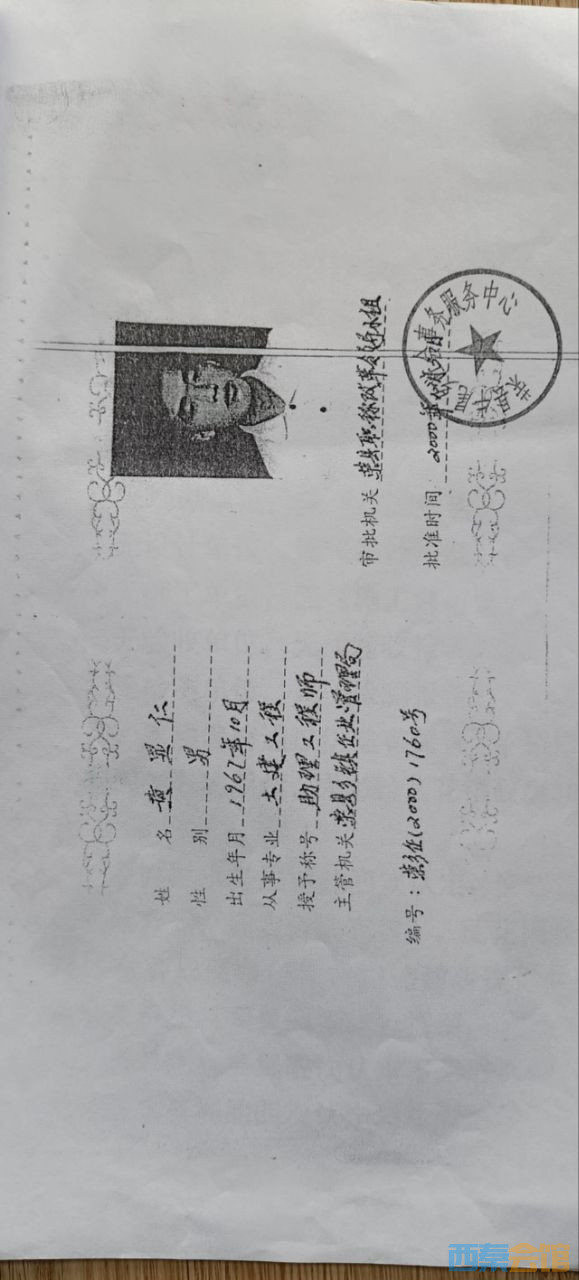 姓 名 黄显仁
性 别 男
出生年月 1967年10月
从事专业 土建工程
授予称号 助理工程师
主管机关 荣县乡镇企业管理局
编号：荣乡企(2000)1760号
审批机关 荣县职称改革领导小组
批准时间 2000年
服务中心
荣县
西秦会馆